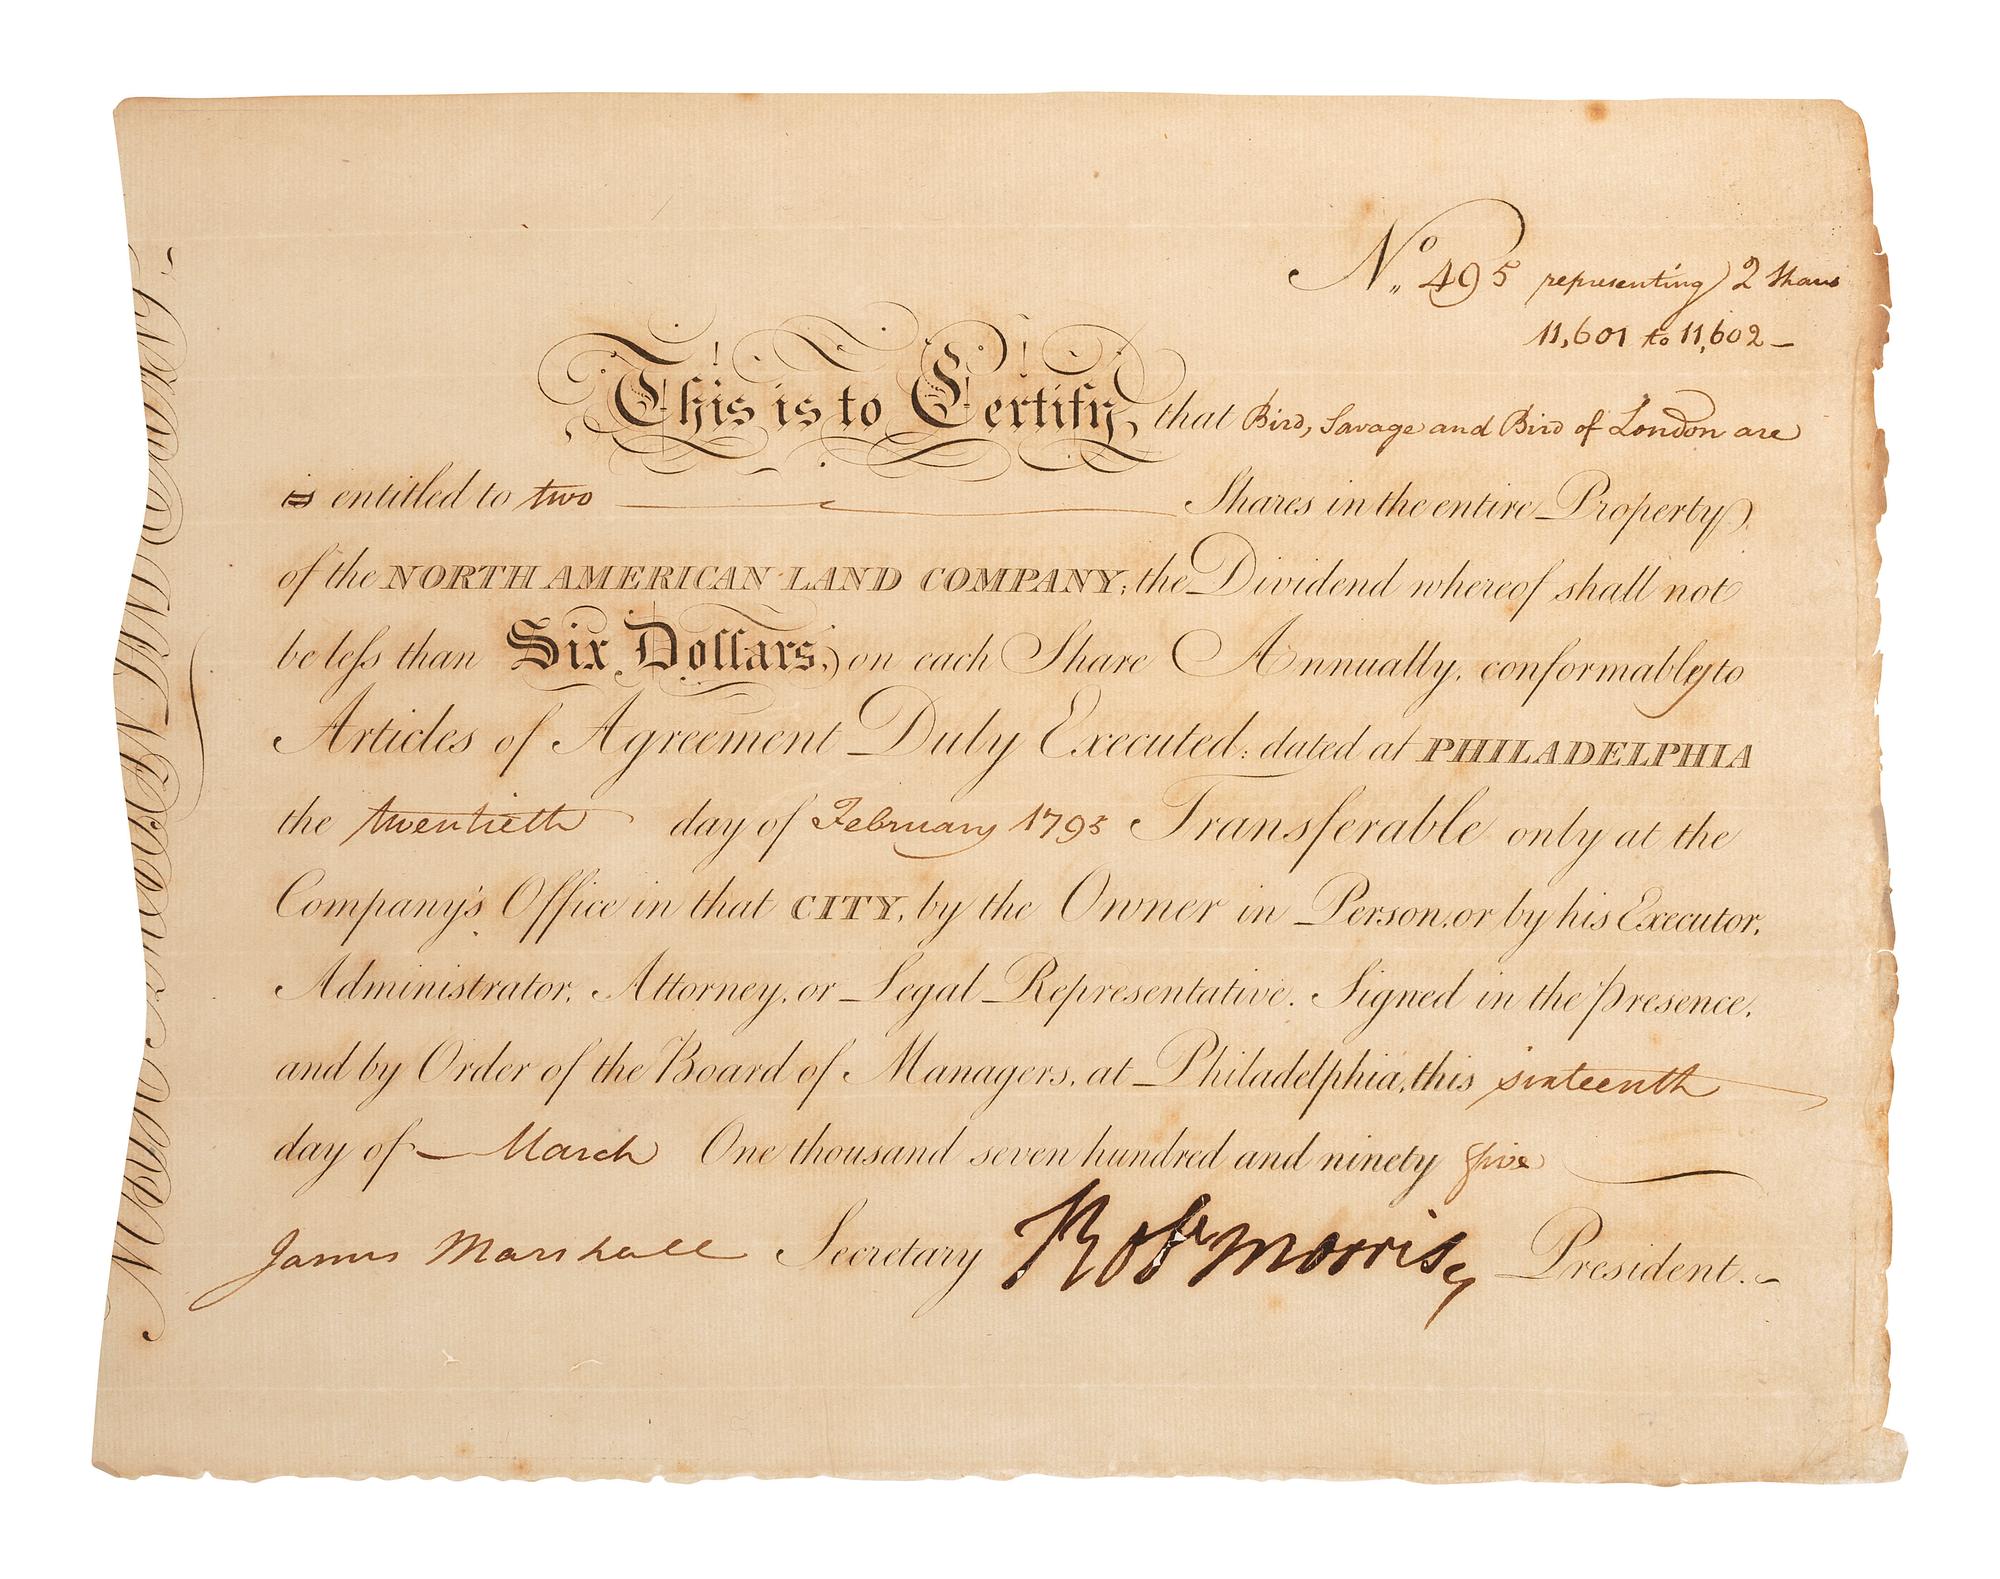 No. 495 representing 2 Shares
11,601 to 11,602
This is to Certify, that Bird, Savage and Bird of London are
is entitled to two Shares in the entire Property
of the NORTH AMERICAN LAND COMPANY; the Dividend whereof shall not
be less than Six Dollars, on each Share Annually, conformably to
Articles of Agreement Duly Executed: dated at PHILADELPHIA
the twentieth day of February 1795 Transferable only at the
Company's Office in that CITY, by the Owner in Person, or by his Executor,
Administrator, Attorney, or Legal Representative. Signed in the presence,
and by Order of the Board of Managers, at Philadelphia, this sixteenth
day of March One thousand seven hundred and ninety five
James Marshall Secretary Robt Morris President.